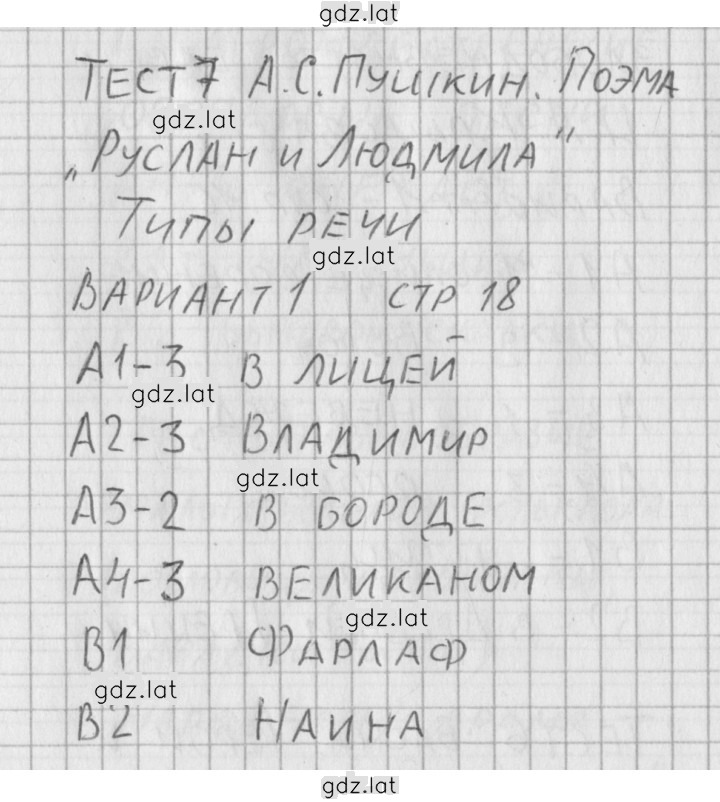 gdz.lat
ТЕСТ 7 А.С. ПУШКИН. ПОЭМА
gdz.lat
„РУСЛАН и ЛЮДМИЛА"
ТИПЫ РЕЧИ
gdz.lat
ВАРИАНТ 1 СТР 18
А1-3 В ЛИЦЕЙ
gdz.lat
А2-3 ВЛАДИМИР
gdz.lat
А3-2 В БОРОДЕ
А4-3 ВЕЛИКАНОМ
gdz.lat
В1 ФАРЛАФ
gdz.lat
В2 НАИНА
gdz.lat